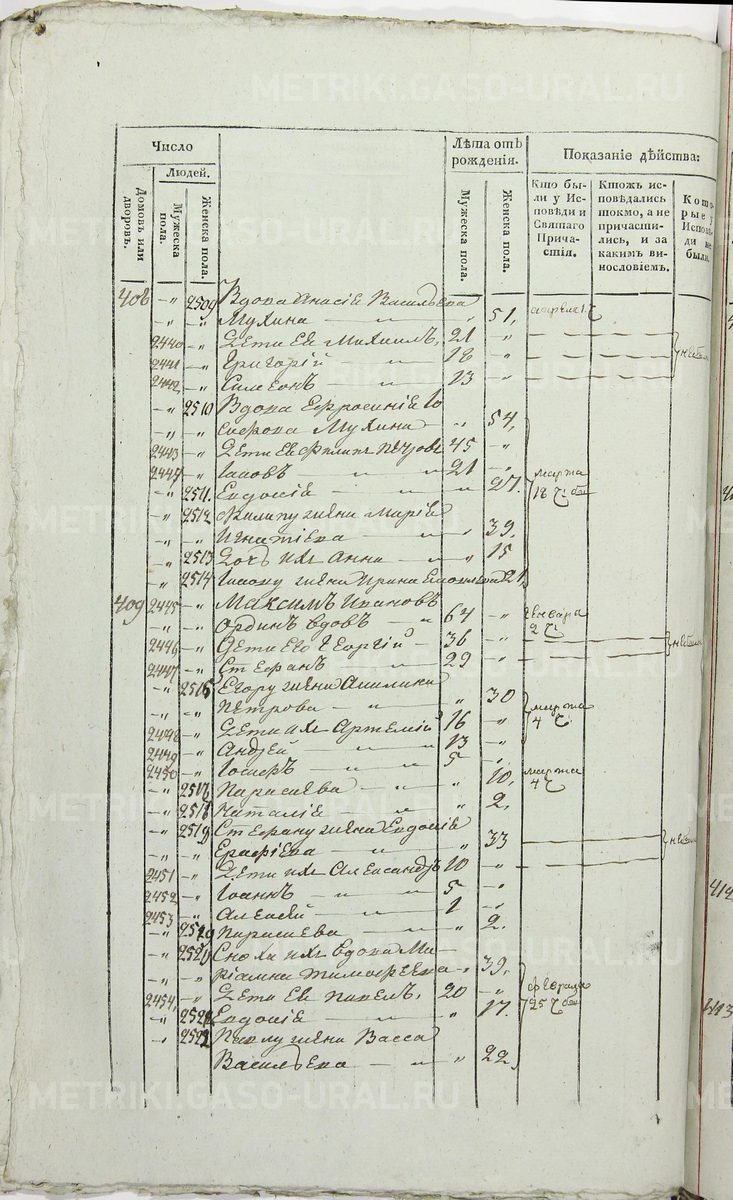 METRIKI.GASO-URAL.RU
Число
Людей.
Домовъ или дворовъ.
Мужеска пола.
Женска пола.
Лѣта отъ рожденія.
Мужеска пола.
Женска пола.
Показаніе дѣйства:
Кто бы-
ли у Ис-
повѣди и
Святаго
Прича-
стія.
Ктожъ ис-
повѣдались
токмо, а не
причасти-
лись, и за
какимъ ви-
нословіемъ.
Кото-
рые у
Исповѣ-
ди не
были.
408 -„ 2509 Вдова Васильева
-„ -„ Мухина — „ 51,
2440 -„ Дети Ея Михаилъ, 21 „
2441 -„ Григорій „ 18 „
2442 -„ Симеонъ — „ 13 „
-„ 2510 Вдова Ефросинія Іо
-„ -„ сифова Мухина „ 54,
2443 -„ Дети Ея Филипъ Петровъ 45 „
2444 -„ Іаковъ — „ 21 „
-„ 2511. Евдокія — „ „ 27. марта 18 ч:
-„ 2512 Филипу жена Марія
-„ -„ Игнатіева — „ „ 39,
-„ 2513 Дочь ихъ Анна — „ „ 15
-„ 2514 Іакову жена Ирина 21,
409 2445 -„ Максимъ Ивановъ
-„ -„ Ординъ вдовъ — „ 64 „ Генваря 2 ч:
2446 -„ Дети Его Георгій — 36 „
2447 -„ Стефанъ „ 29 „
-„ 2515 Егору жена Акилина
-„ -„ Петрова — „ „ 30 марта 4 ч
2448 -„ Дети ихъ Артемій 16 „
2449 -„ Андрей — „ 13 „
2450 -„ Іосифъ — „ 5 „
-„ 2516 Параскева — „ „ 10, марта 4 ч
-„ 2517 Наталія — „ „ 2.
-„ 2518 Стефану жена Евдокія
-„ -„ Ерафіева „ „ 33
2451 -„ Дети ихъ Александръ 10 „
2452 -„ Іоаннъ — „ 5 „
2453 -„ Алексей — „ 1 „
-„ 2519 Параскева — „ „ 2.
-„ 2520 Сноха ихъ вдова Ма-
-„ -„ ріамна Тимофеева „ 39,
2454, -„ Дети Ея Павелъ, 20 „ Февраля 25 ч
-„ 2521 Евдокія — „ „ 17.
-„ 2522 Павлу жена Васса
Васильева — „ „ 22,
412
413